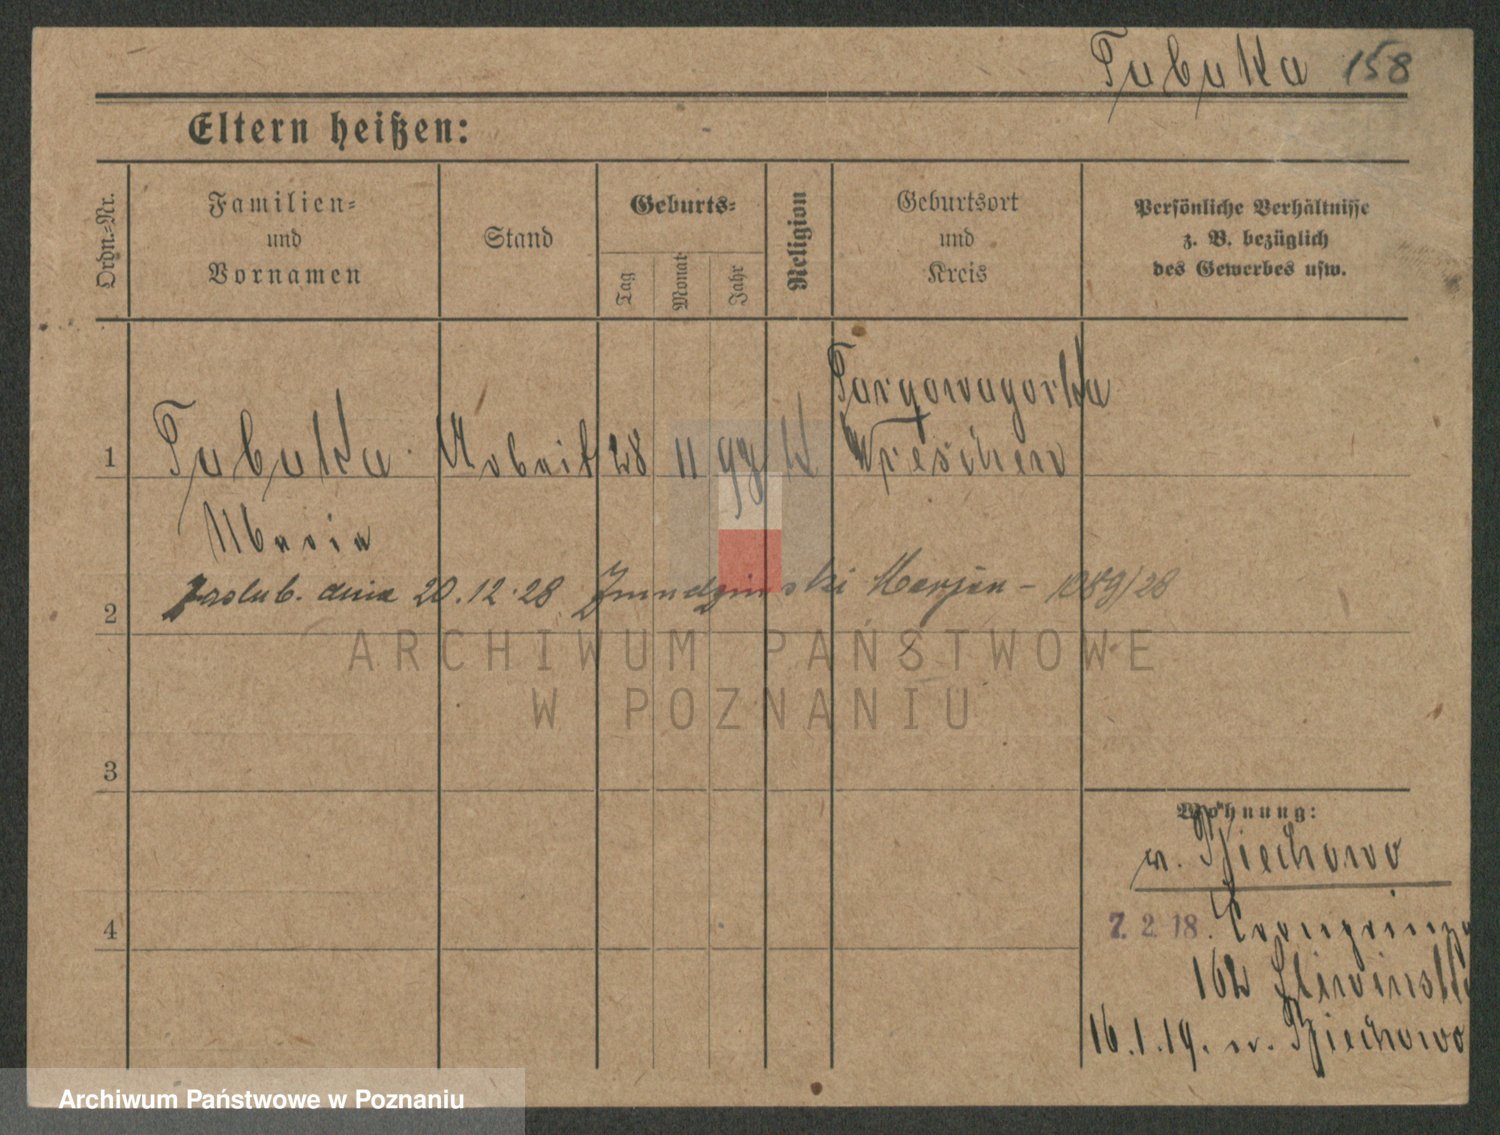 Tubutka 158
Eltern heißen:
Ordn.=Nr.
Familien=
und
Vornamen
Stand
Geburts=
Tag
Monat
Jahr
Religion
Geburtsort
und
Kreis
Persönliche Verhältnisse
z. B. bezüglich
des Gewerbes usw.
Targowagorka
1 Arbeit 28 11 97 K Wreschen
Maria
2 zaslub. dnia 20.12.28 Marjan – 1089/28
ARCHIWUM PAŃSTWOWE
W POZNANIU
3
Wohnung:
n. Biechowo
4
7. 2. 18. Cronprinz
162 Sliwinski
16.1.19. n. Biechowo
Archiwum Państwowe w Poznaniu